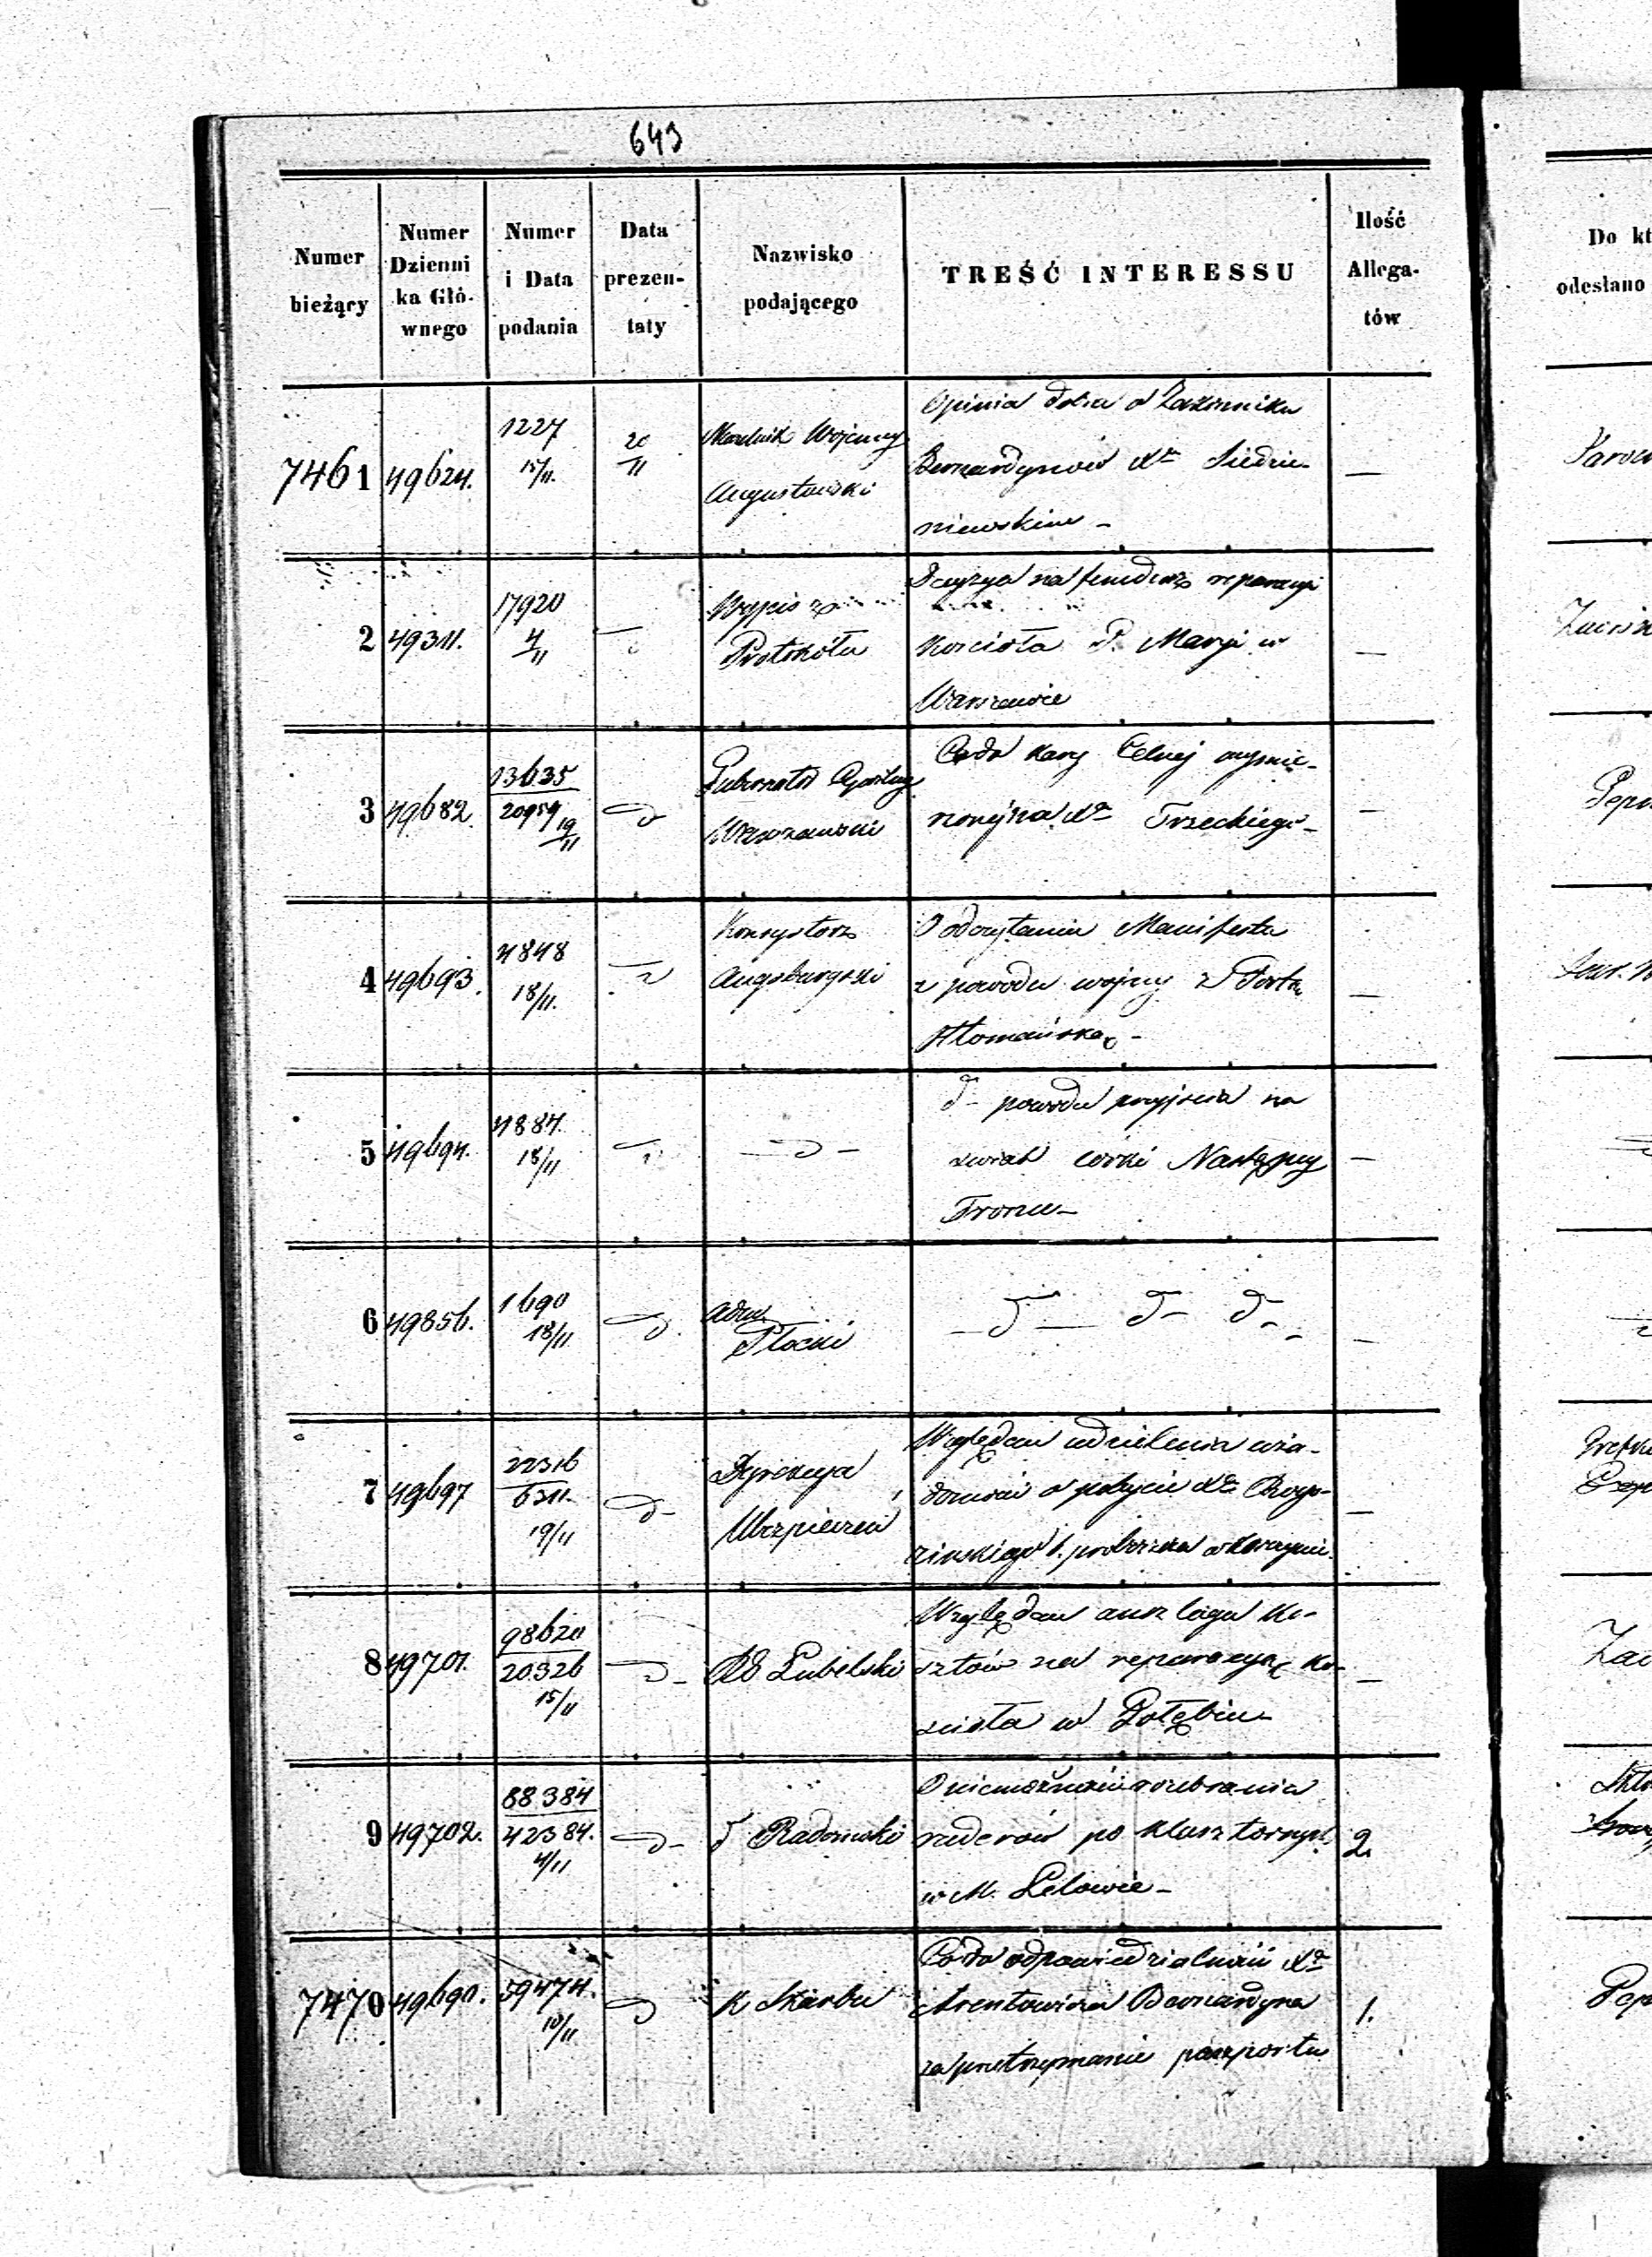 643
Numer bieżący
Numer Dzienni ka Głó- wnego
Numer i Data podania
Data prezen- taty
Nazwisko podającego
TREŚĆ INTERESSU
Ilość Allega- tów
Do kt
odesłano
7461 49624. 1227 15/11. 20/11 Naczelnik Wojenny Augustowski
Opinia dobra o Zakonniku
Bernardynów Xa
niewskim -
—
2 49311. 17920 4/11 Wypis z Protokółu
Decyzya na fundusz reparacyi
Kościoła P. Maryi w
Warszawie
—
3 49682. 13635 20959 19/11 Gubernator Cywilny Warszawski
Co do Kary Celnej wymie-
rzonej na Xa Trzeckiego -
—
4 49693. 4848 18/11. Konsystorz Augsburgski
O odczytaniu Manifestu
z powodu wojny z Portą
Ottomańską -
—
5 49694. 4884. 18/11 — d —
d - powodu przyjścia na
świat córki Następcy
Tronu -
—
6 49856. 1690 18/11 Adm. Płocki
— d — d - d - -
—
7 49697 22316 6311. 19/11 d - Dyrekcya Ubezpieczeń
Względem udzielenia wia-
domości o pobycie Xa
b. proboszcza
—
8 49701. 98620 20326 15/11 d - RG Lubelski
Względem
sztów na reparacyą Ko-
ścioła w Gołębiu -
—
9 49702. 88384 42384. 4/11 d - d Radomski
O niemożności rozebrania
ruderów po klasztornych
w M. Lelowie -
2.
7470 49690. 59474. 10/11 d K Skarbu
Co do odpowiedzialności Xa
Arentowicza Bernardyna
za przetrzymanie paszportu
1.